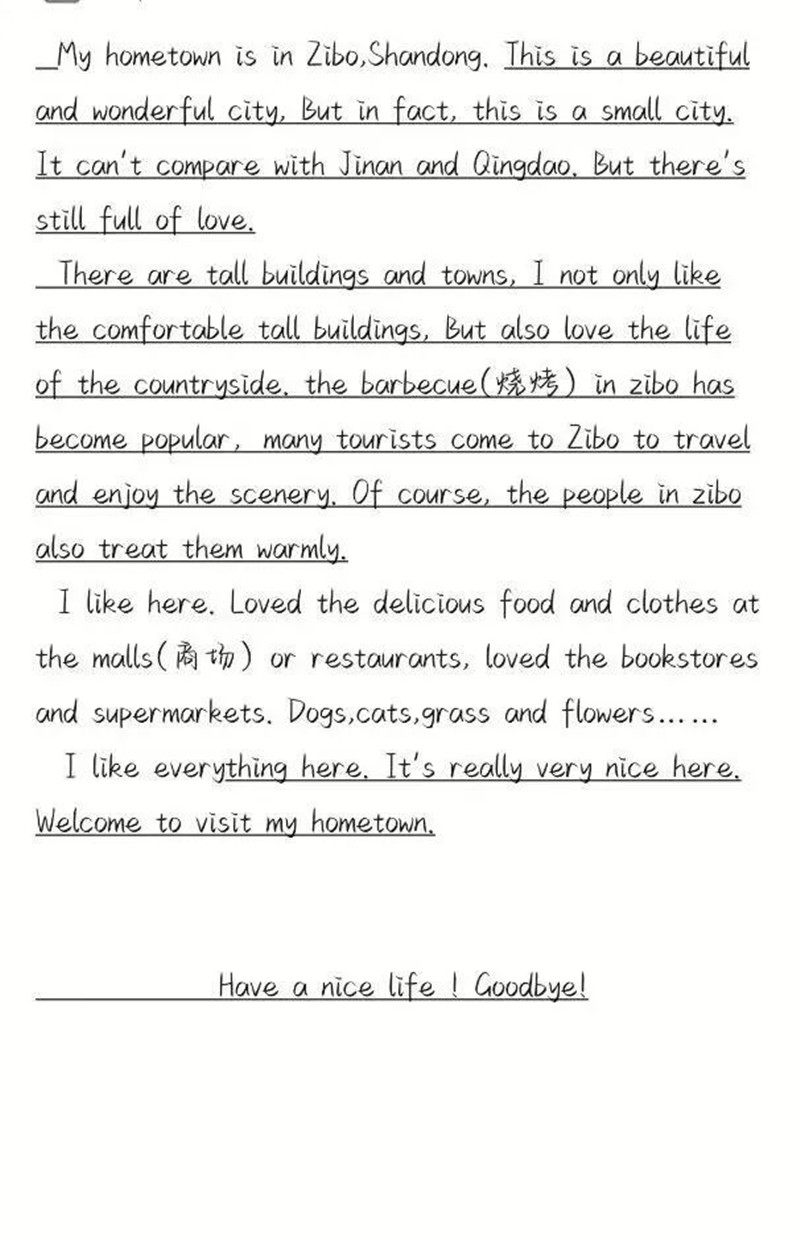 My hometown is in Zibo,Shandong. This is a beautiful
and wonderful city, But in fact, this is a small city.
It can't compare with Jinan and Qingdao. But there's
still full of love.
There are tall buildings and towns, I not only like
the comfortable tall buildings, But also love the life
of the countryside. the barbecue(烧烤) in zibo has
become popular, many tourists come to Zibo to travel
and enjoy the scenery. Of course, the people in zibo
also treat them warmly.
I like here. Loved the delicious food and clothes at
the malls(商场) or restaurants, loved the bookstores
and supermarkets. Dogs,cats,grass and flowers……
I like everything here. It's really very nice here.
Welcome to visit my hometown.
Have a nice life ! Goodbye!